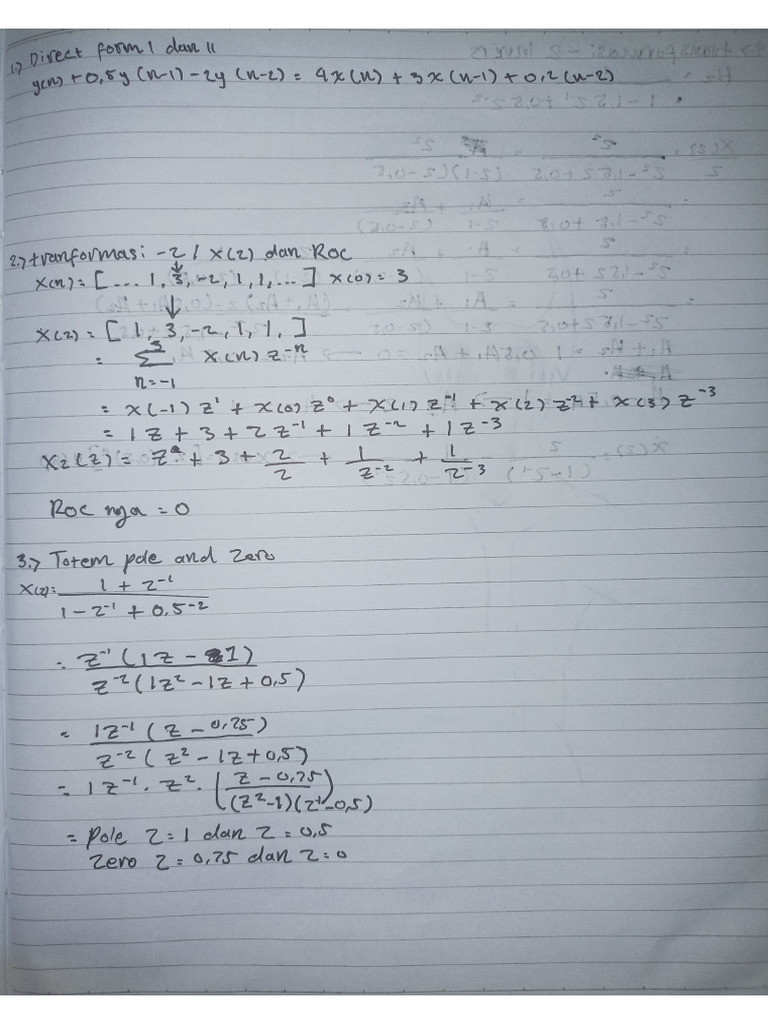 1.) Direct form I dan II
y(n) + 0,5y (n-1) - 2y (n-2) = 4x(n) + 3x(n-1) + 0,2(n-2)
2.) tranformasi -2 / X(2) dan Roc
x(n) = [ ... 1, 3, -2, 1, 1, ... ] x(0) = 3
X(2) = [ 1, 3, -2, 1, 1, ]
= 3 Σ n=-1 x(n) z^-n
= x(-1) z^1 + x(0) z^0 + x(1) z^-1 + x(2) z^2 + x(3) z^-3
= 1z + 3 + 2z^-1 + 1z^-2 + 1z^-3
X2(z) = z + 3 + 2/2 + 1/z^-2 + 1/z^-3
Roc nya = 0
3.) Totem pole and zero
X(2) = 1 + z^-1
1 - z^-1 + 0,5^-2
= z^-1 (1z - 1)
z^-2 (1z^2 - 1z + 0,5)
= 1z^-1 (z - 0,75)
z^-2 (z^2 - 1z + 0,5)
= 1z^-1 . z^2 . ( z - 0,75
(z^2-1)(z^1-0,5) )
= Pole z = 1 dan z = 0,5
Zero z = 0,75 dan z = 0